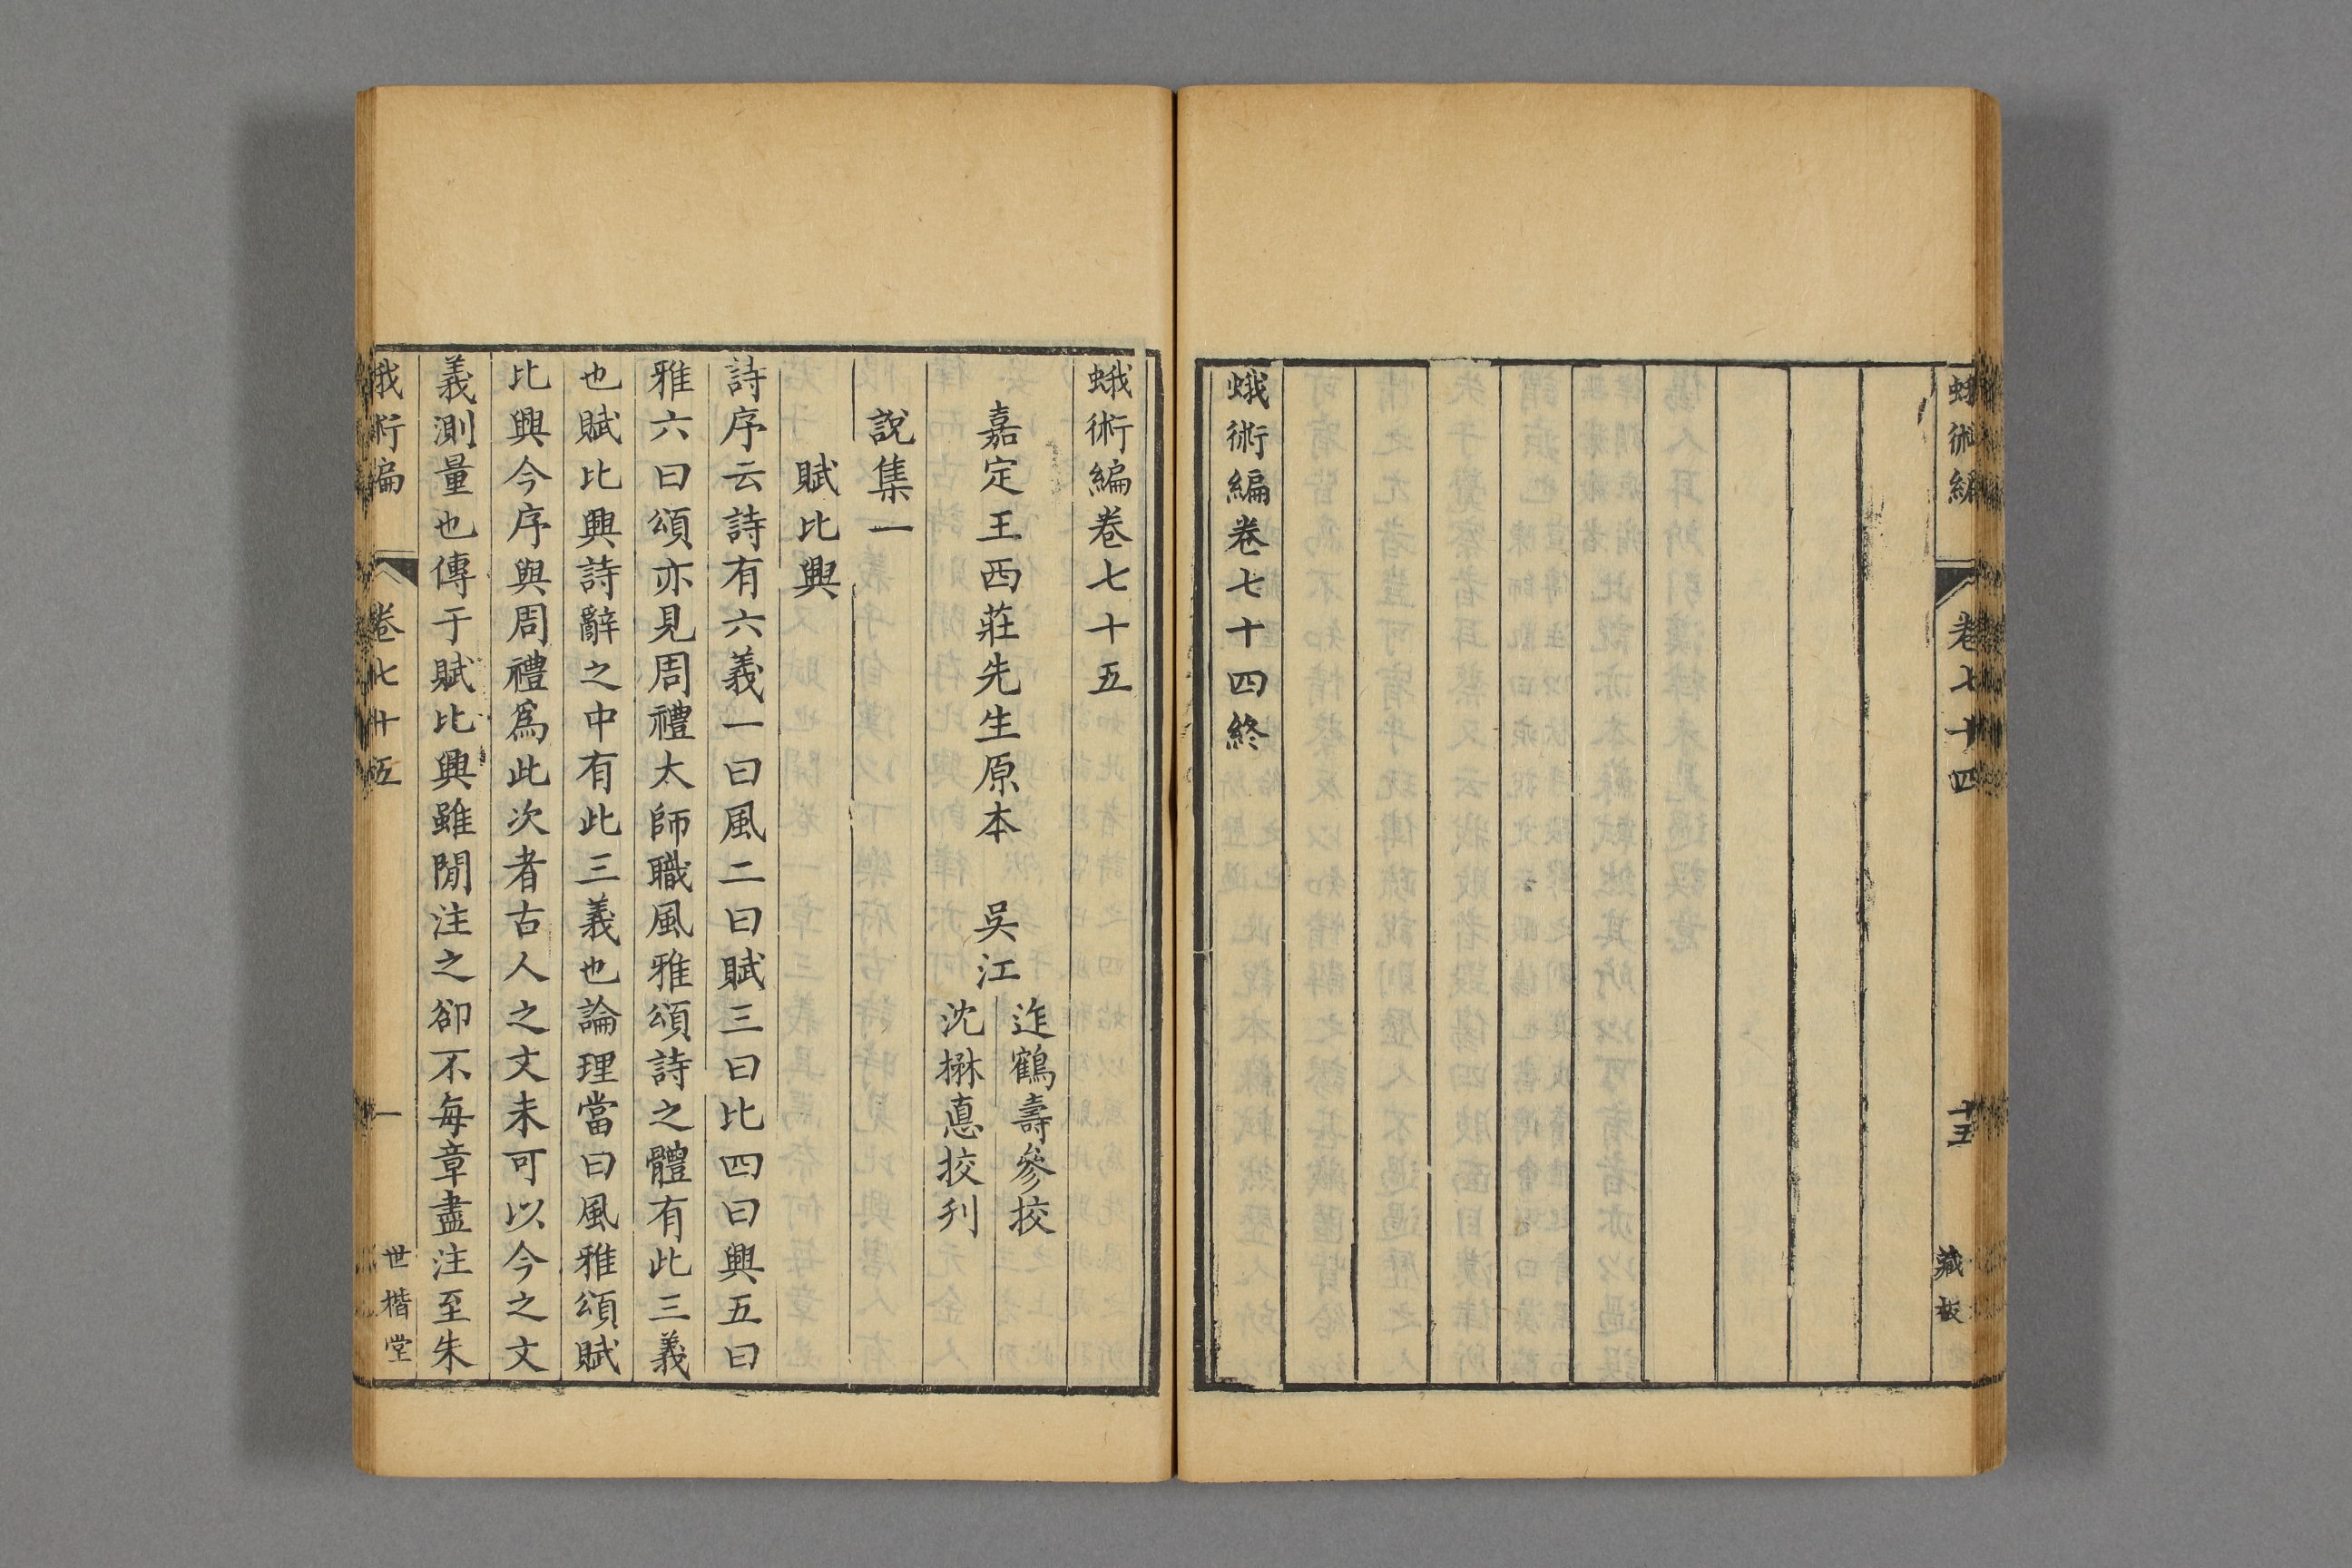 蛾術編
卷七十四
十五
藏板
蛾術編卷七十四終
蛾術編卷七十五
嘉定王西莊先生原本
吳江
迮鶴壽參挍
沈楙悳挍刋
說集一
賦比興
詩序云詩有六義一曰風二曰賦三曰比四曰興五曰
雅六曰頌亦見周禮太師職風雅頌詩之體有此三義
也賦比興詩辭之中有此三義也論理當曰風雅頌賦
比興今序與周禮爲此次者古人之文未可以今之文
義測量也傳于賦比興雖閒注之卻不每章盡注至朱
蛾術編
卷七十五
一
世楷堂